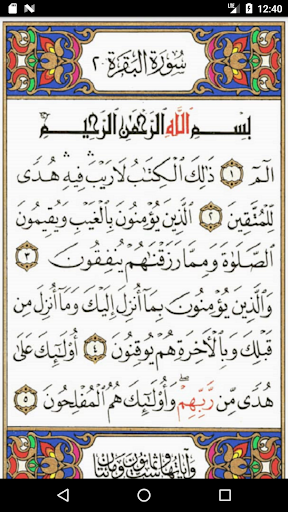 12:40
سُورَةُ الْبَقَرَةِ ٢
بِسْمِ اللَّهِ الرَّحْمَٰنِ الرَّحِيمِ
الٓمٓ ١ ذَٰلِكَ الْكِتَٰبُ لَا رَيْبَ ۛ فِيهِ ۛ هُدًى
لِلْمُتَّقِينَ ٢ الَّذِينَ يُؤْمِنُونَ بِالْغَيْبِ وَيُقِيمُونَ
الصَّلَوٰةَ وَمِمَّا رَزَقْنَٰهُمْ يُنفِقُونَ ٣
وَالَّذِينَ يُؤْمِنُونَ بِمَآ أُنزِلَ إِلَيْكَ وَمَآ أُنزِلَ مِن
قَبْلِكَ وَبِالْآخِرَةِ هُمْ يُوقِنُونَ ٤ أُولَٰٓئِكَ عَلَىٰ
هُدًى مِّن رَّبِّهِمْ ۖ وَأُولَٰٓئِكَ هُمُ الْمُفْلِحُونَ ٥
وآياتها ست وثمانون ومائتان